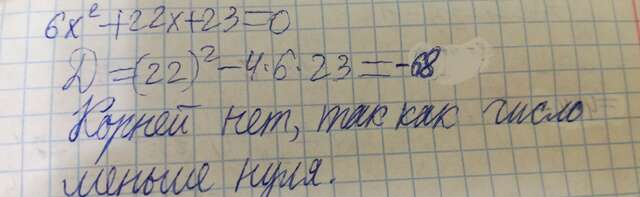 6x²+22x+23=0
D=(22)²-4·6·23=-68
Корней нет, так как число
меньше нуля.